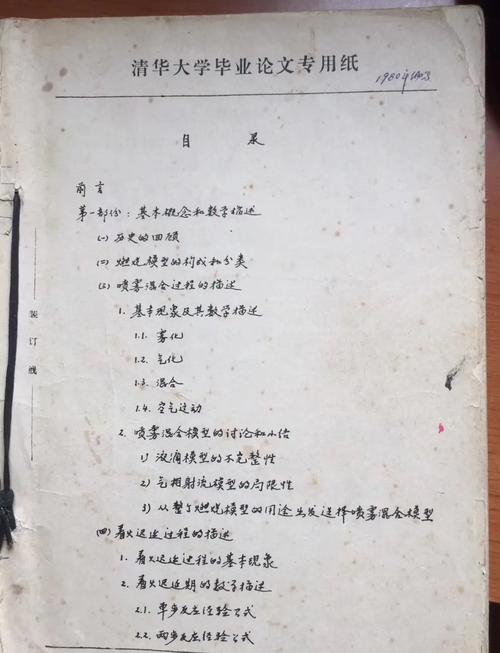 清华大学毕业论文专用纸
1980年
目 录
前言
第一部份：基本概念和数学描述
(一) 历史的回顾
(二) 燃烧模型的构成和分类
(三) 喷雾混合过程的描述
1. 基本现象及其数学描述
1.1. 雾化
1.2. 气化
1.3. 混合
1.4. 空气运动
2. 喷雾混合模型的讨论和小结
1) 液滴模型的不完整性
2) 气相射流模型的局限性
3) 从整个燃烧模型的用途出发选择喷雾混合模型
(四) 着火迟延过程的描述
1. 着火迟延过程的基本现象
2. 着火迟延期的数学描述
2.1. 单步反应经验公式
2.2. 两步反应经验公式
装订线